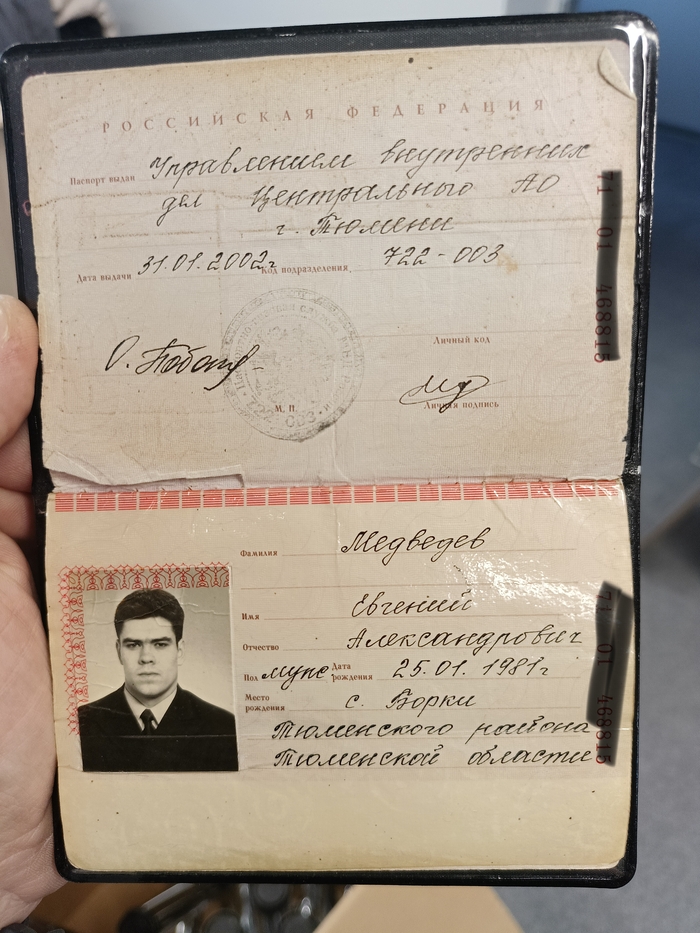 РОССИЙСКАЯ ФЕДЕРАЦИЯ
Паспорт выдан Управлением внутренних
дел Центрального АО
г. Тюмени
Дата выдачи 31.01.2002г Код подразделения 722-003
Личный код
М. П.
Личная подпись
Фамилия Медведев
Имя Евгений
Отчество Александрович
Пол муж Дата рождения 25.01.1981г
Место рождения с. Борки
Тюменского района
Тюменской области